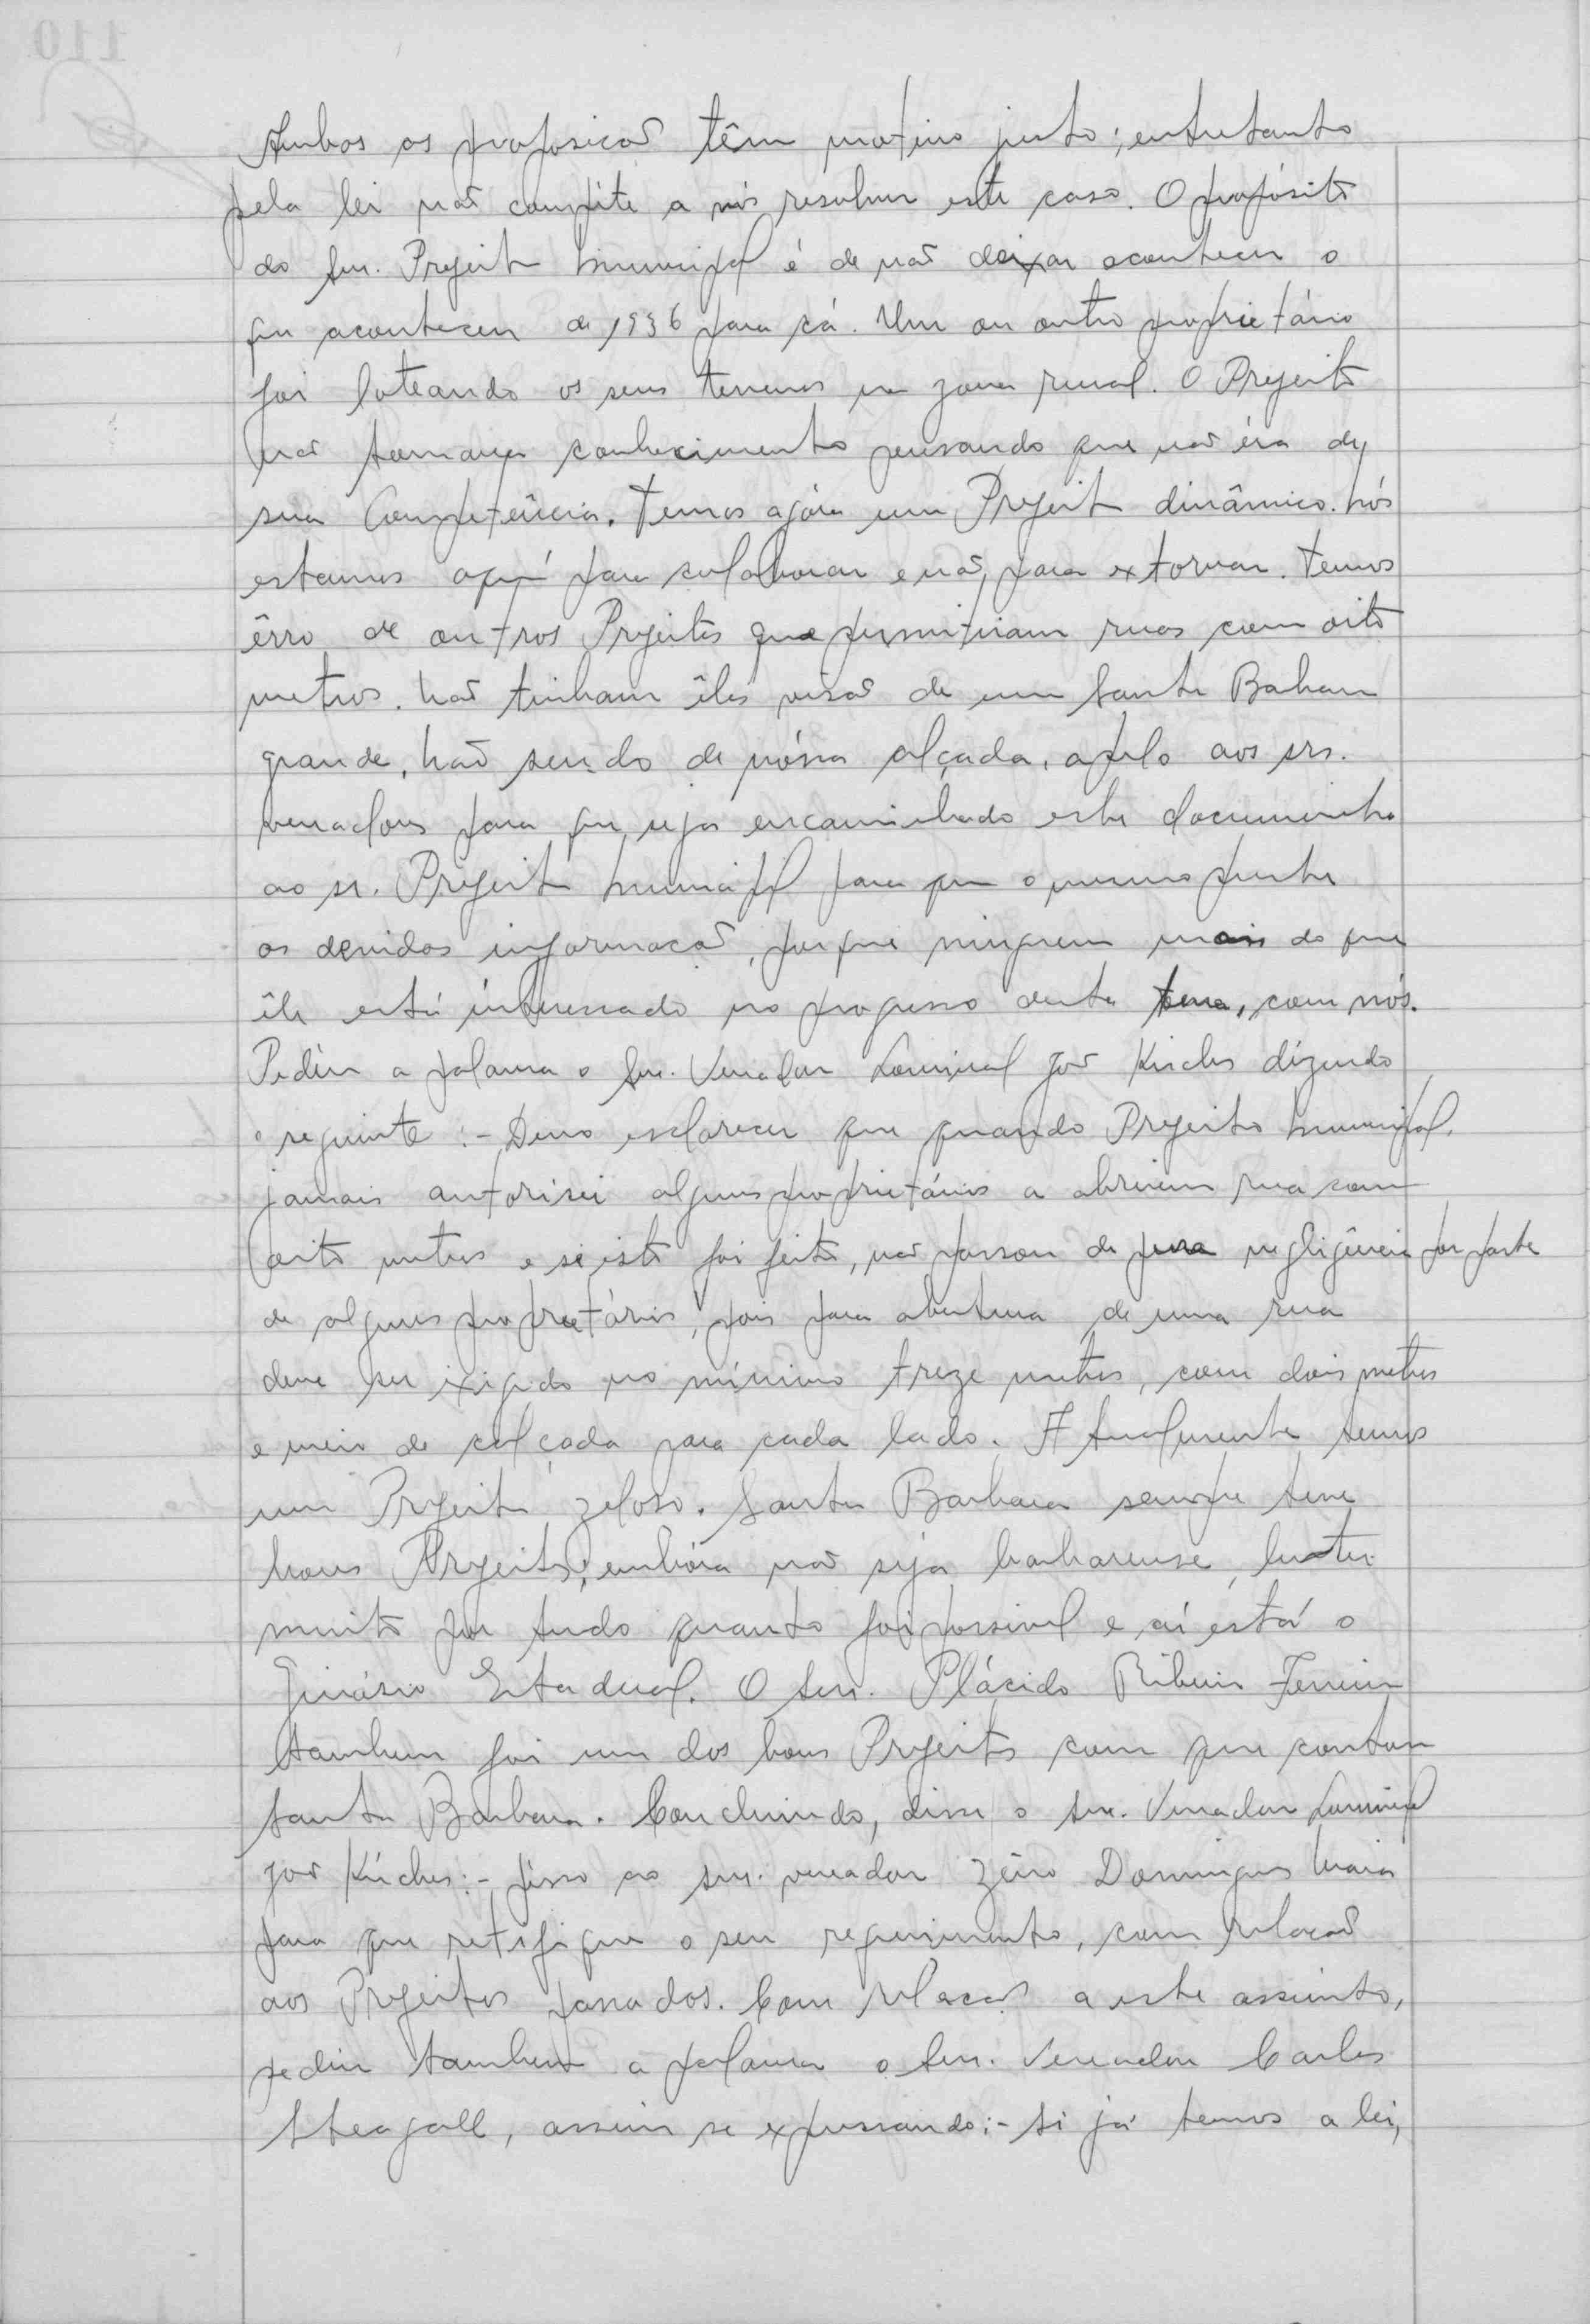 Ambas as proposicoẽs têm motivo justo; entretanto
pela lei não compéte a nós resolver este caso. O propósito
do Snr. Prefeito Municipal é de não deixar acontecer o
que aconteceu de 1936 para cá. Um ou outro proprietário
foi loteando os seus terrenos na zona rural. O Prefeito
não tomava conhecimento pensando que não éra de
sua Competência. Temos agóra um Prefeito dinâmico. Nós
estamos aquí para colaborar e não para extorvar. Temos
êrro de outros Prefeitos que permitiram ruas com oito
metros. Não tinham êles visão de uma Santa Barbara
grande. Não sendo de nóssa alçada, apelo aos srs.
vereadores para que seja encaminhado este documento
ao sr. Prefeito Municipal para que o mesmo preste
as devidas informacoẽs, porque ninguem mais do que
êle está interessado no progresso desta terra, com nós.
Pediu a palavra o Snr. Vereador Lourival José Kirches dizendo
o seguinte:- Devo esclarecer que quando Prefeito Municipal,
jamais autorisei alguns proprietários a abrirem rua com
oito metros e si isto foi feito, não passou de pura negligência por parte
de alguns proprietários, pois para abertura de uma rua
deve ser exigido no mínimo treze metros, com dois metros
e meio de calçada para cada lado. Atualmente temos
um Prefeito zeloso. Santa Barbara sempre teve
bons Prefeitos; embóra não seja barbarense, lutei
muito por tudo quanto foi possivel e aí está o
Ginásio Estadual. O Snr. Plácido Ribeiro Ferreira
tambem foi um dos bons Prefeitos com que contou
Santa Barbara. Concluindo, disse o Snr. Vereador Lourival
José Kirches:- Peço ao snr. vereador Zêno Domingues Maia
para que retifique o seu requerimento, com relacaõ
aos Prefeitos passados. Com relacaõ a este assunto,
pediu tambem a palavra o Snr. Vereador Carlos
Steagall, assim se expressando:- Si já temos a lei,
110